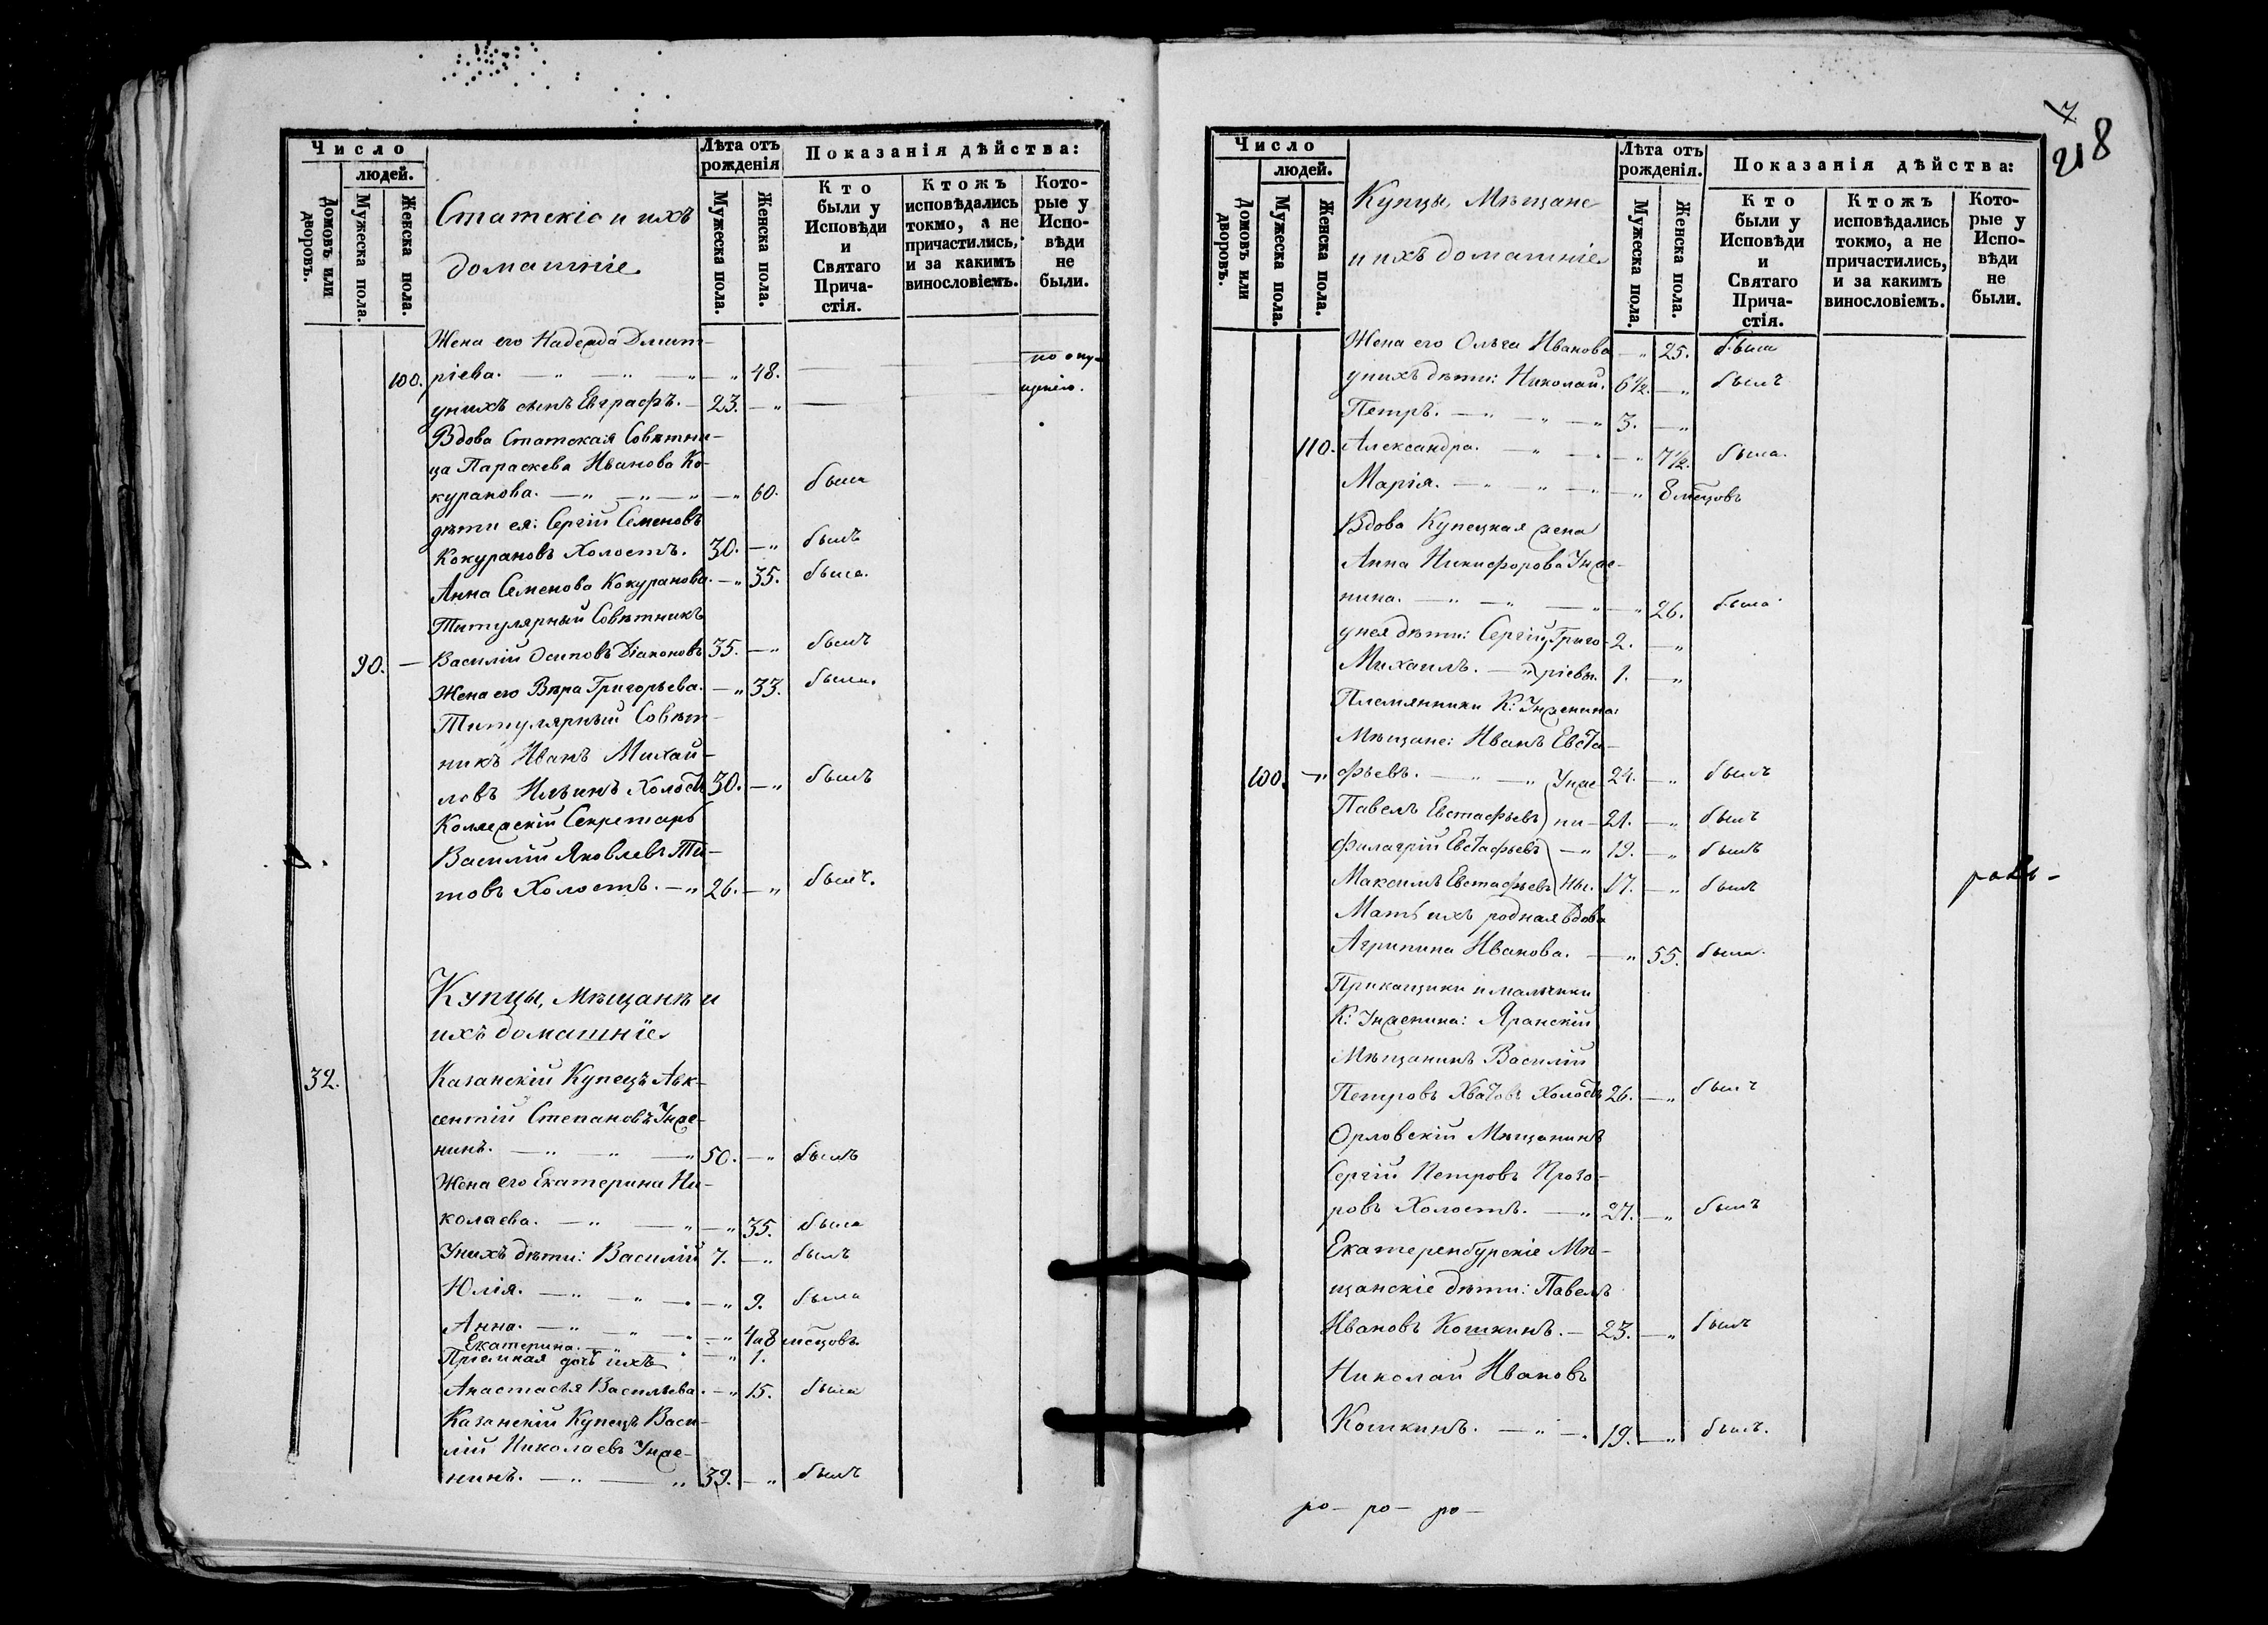 Число
людей.
Домовъ или дворовъ.
Мужеска пола.
Женска пола.
Статскіе и ихъ
домашніе
Лѣта отъ рожденія
Мужеска пола.
Женска пола.
Показанія дѣйства:
Кто были у Исповѣди и Святаго Прича-стія.
Ктожъ исповѣдались токмо, а не причастились, и за какимъ винословіемъ.
Кото-рые у Испо-вѣди не были.
Жена его Надежда Дмит-
100. ріева. — „ — „ — „ — „ 48. — по опу-
у нихъ сынъ Евграфъ. — 23. — „ — щенію.
Вдова Статская Совѣтни-
ца Параскева Иванова Ко-
куранова. — „ — „ — „ — „ 60. была
дѣти ея: Сергій Семеновъ
Кокурановъ Холостъ. 30. — „ былъ
Анна Семенова Кокуранова. — „ 35. была.
Титулярный Совѣтникъ
90. — Василій Осиповъ Діаконовъ 35. — „ былъ
Жена его Вѣра Григорьева. — „ 33. была.
Титулярный Совѣт-
никъ Иванъ Михай-
ловъ Ильинъ Холостъ 30. — „ былъ
Коллежскій Секретарь
Василій Яковлевъ Ти-
товъ Холостъ. — „ 26. — „ былъ.
Купцы, Мѣщанѣ и
ихъ домашніе
32. Казанскій Купецъ Авк-
сентій Степановъ Унже-
нинъ. — „ — „ — „ 50. — „ былъ
Жена его Екатерина Ни-
колаева. — „ — „ — „ 35. была
У нихъ дѣти: Василій 7. — „ былъ
Юлія. — „ — „ — „ 9. была
Анна. — „ — „ — „ 4 и 8 мѣсцовъ.
Екатерина. — „ — „ 1.
Пріемная дочь ихъ
Анастасья Васильева. — „ 15. была
Казанскій Купецъ Васи-
лій Николаевъ Унже-
нинъ. — „ — „ 39. — „ былъ
7
218
Число
людей.
Домовъ или дворовъ.
Мужеска пола.
Женска пола.
Купцы, Мѣщане
и ихъ домашніе
Лѣта отъ рожденія.
Мужеска пола.
Женска пола.
Показанія дѣйства:
Кто были у Исповѣди и Святаго Прича-стія.
Ктожъ исповѣдались токмо, а не причастились, и за какимъ винословіемъ.
Кото-рые у Испо-вѣди не были.
Жена его Ольга Иванова — „ 25. была
у нихъ дѣти: Николай. 6½. — „ былъ
Петръ. — „ — „ — „ 3. — „
110. Александра. — „ — „ 7½. была.
Марія. — „ — „ — „ — „ 8 мѣсцовъ
Вдова Купецкая жена
Анна Никифорова Унже-
нина. — „ — „ — „ — „ 26. была
у нея дѣти: Сергій Григо- 2. — „
Михаилъ. — „ ріевы. 1. — „
Племянники К: Унженина:
Мѣщане: Иванъ Евста-
100. — „ фьевъ. — „ — „ Унже- 24. — „ былъ
Павелъ Евстафьевъ ни- 21. — „ былъ
Филагрій Евстафьевъ — „ 19. — „ былъ
Максимъ Евстафьевъ ны. 17. — „ былъ
Мать ихъ родная вдова
Агрипина Иванова. — „ 55. была.
Прикащики и мальчики
К: Унженина: Яранскій
Мѣщанинъ Василій
Петровъ Хватовъ Холостъ 26. — „ былъ
Орловскій Мѣщанинъ
Сергій Петровъ Прозо-
ровъ Холостъ. — „ 27. — „ былъ
Екатеренбурскіе Мѣ-
щанскіе дѣти: Павелъ
Ивановъ Кошкинъ. — 23. — „ былъ
Николай Ивановъ
Кошкинъ. — „ — 19. — „ былъ.
ро — ро — ро —